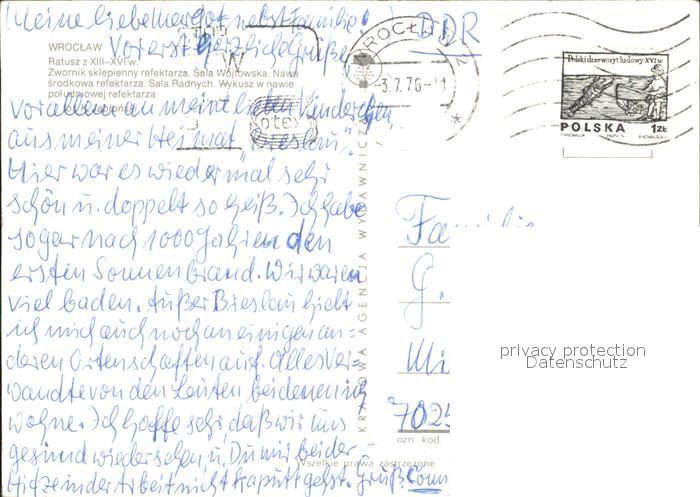 Meine liebe Margot nebst Familie!
Vorerst herzliche Grüße
WROCŁAW
Ratusz z XIII–XVI w.
Zwornik sklepienny refektarza. Sala Wójtowska. Nawa
środkowa refektarza. Sala Radnych. Wykusz w nawie
południowej refektarza
Vor allem an meine lieben Kinderchen
aus meiner Heimat "Breslau".
Hier war es wieder mal sehr
schön u. doppelt so heiß. Ich habe
sogar nach 1000 Jahren den
ersten Sonnenbrand. Wir waren
viel baden. Außer Breslau hielt
ich mich auch noch an einigen an-
deren Ortenschaften auf. Alles Ver-
wandte von den Leuten bei denen ich
wohne. Ich hoffe sehr, daß wir uns
gesund wiedersehen u. Du mir bei der
Hitze in der Arbeit nicht kaputt gehst. Gruß
KRAJOWA AGENCJA WYDAWNICZA
DDR
WROCŁAW
-3.7.76-
Polski drzeworyt ludowy XVI w.
POLSKA 1ZŁ
Fa
G.
702
ozn. kod.
Wszelkie prawa zastrzeżone
privacy protection
Datenschutz